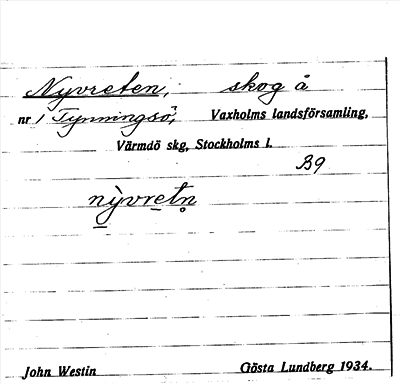 Nyvreten, skog å
nr 1 Tynningsö, Vaxholms landsförsamling,
Värmdö skg, Stockholms l.
B9
nỳvretn̥
John Westin Gösta Lundberg 1934.